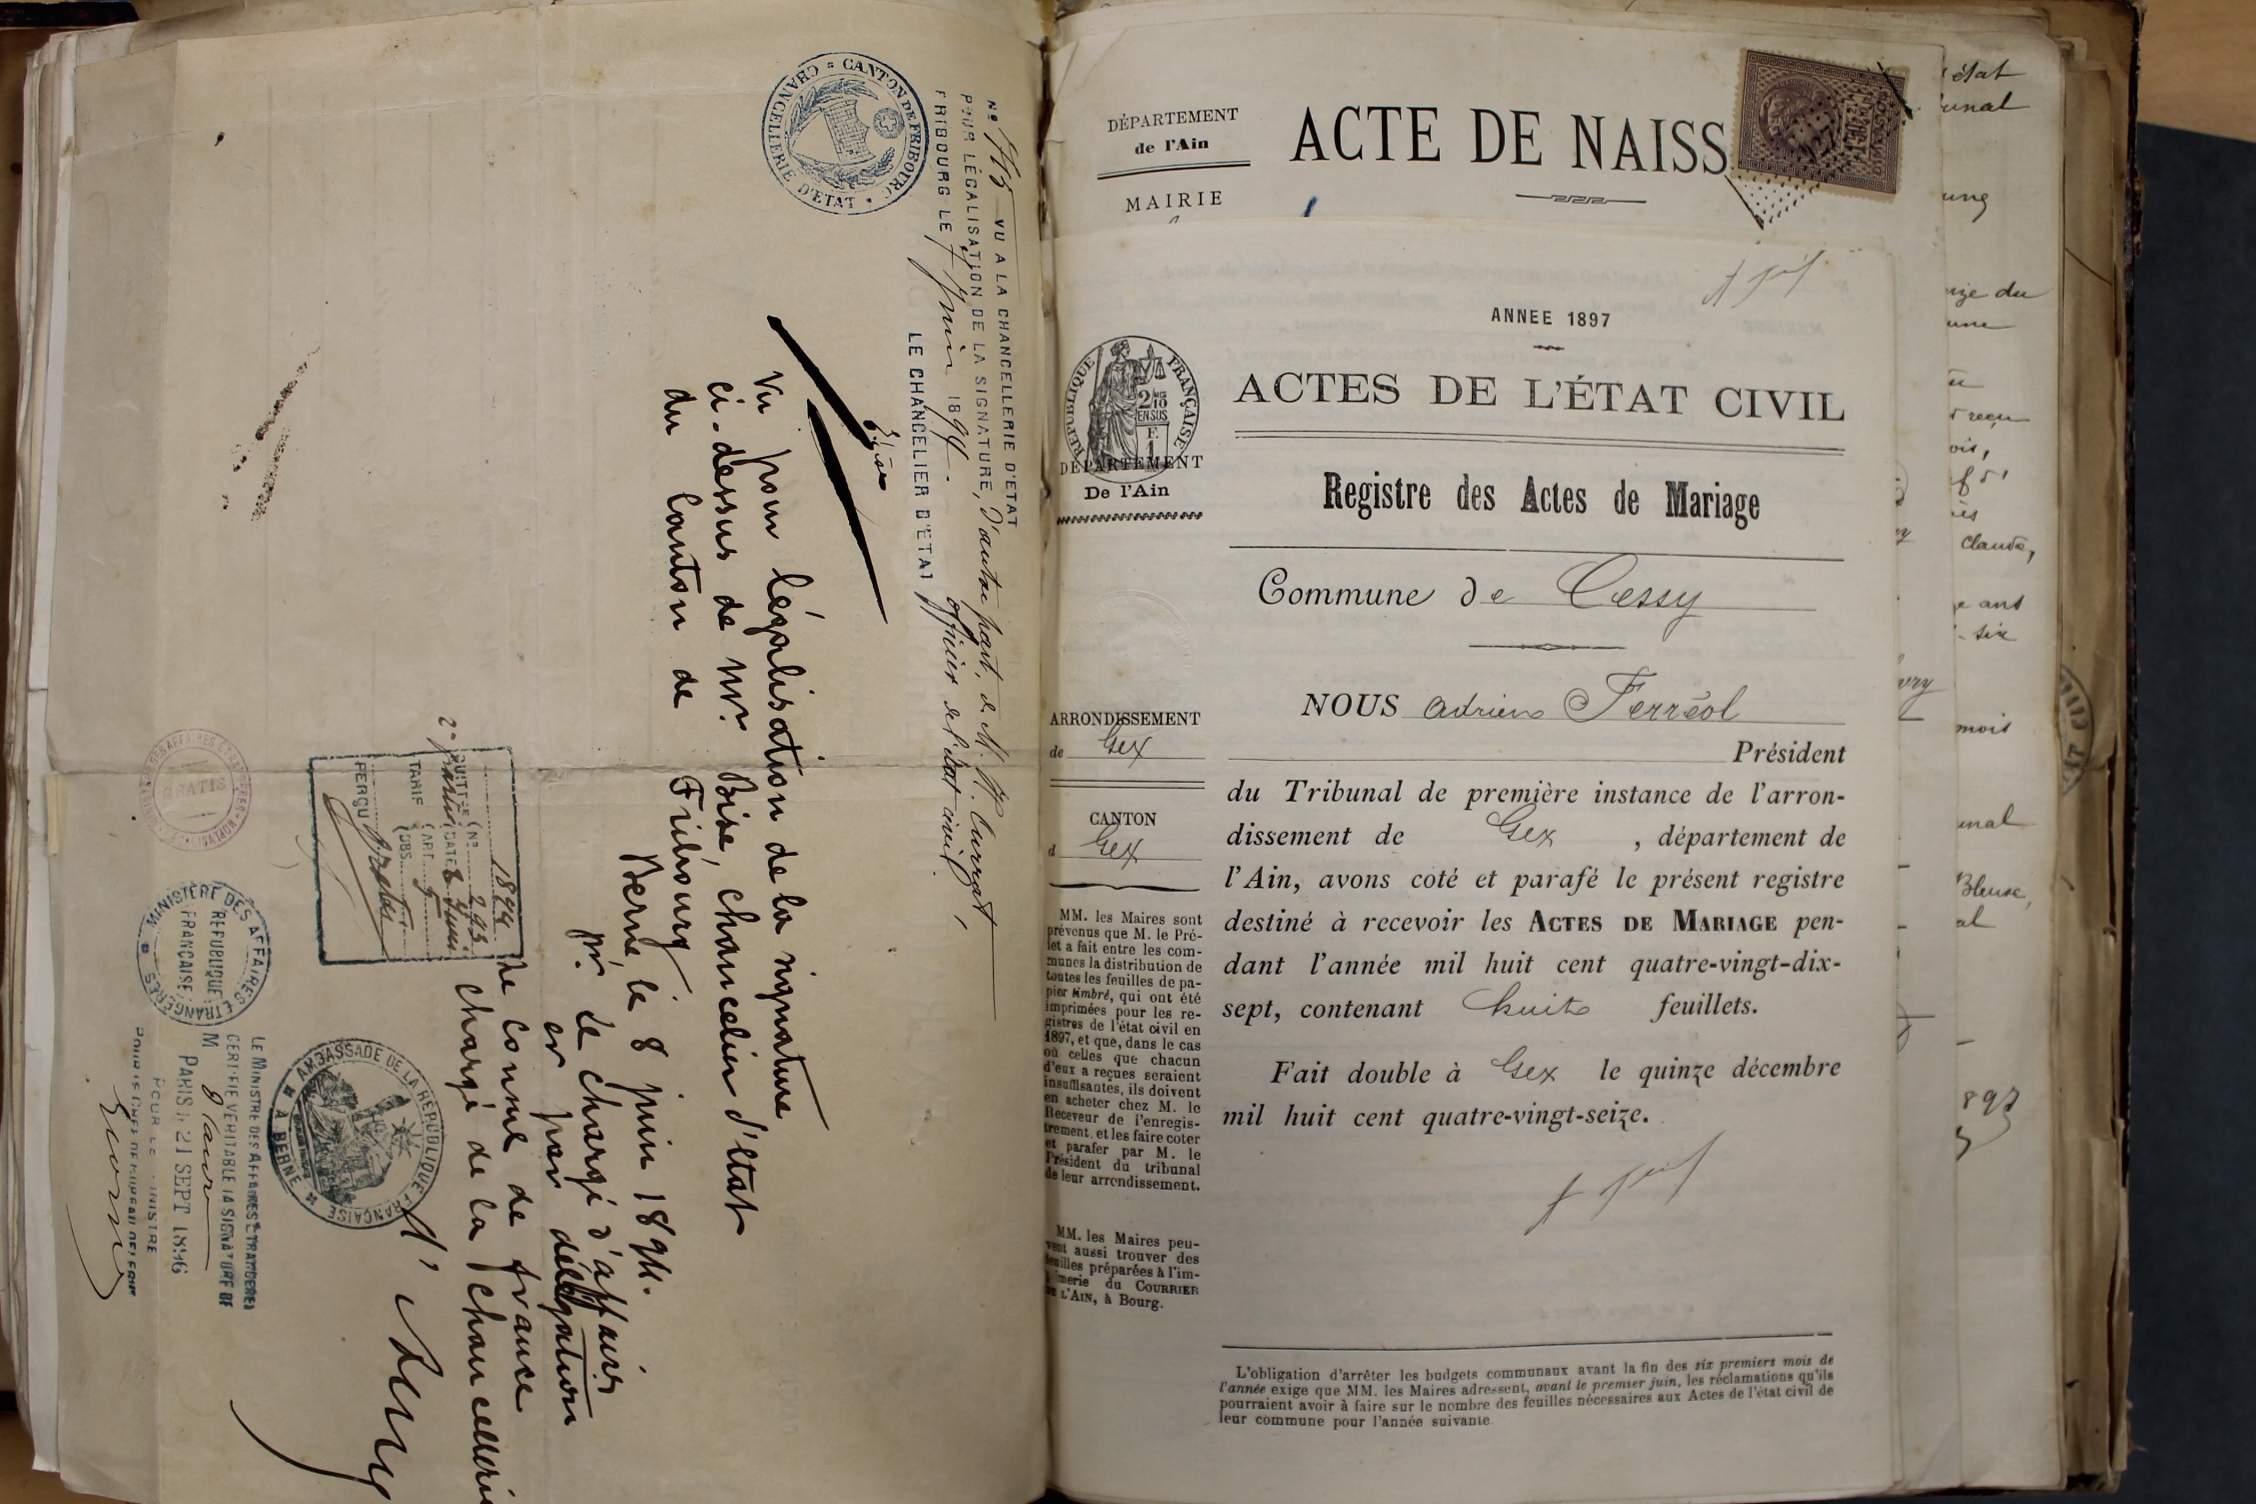 CANTON DE FRIBOURG
CHANCELLERIE D'ETAT
No VU A LA CHANCELLERIE D'ETAT
POUR LÉGALISATION DE LA SIGNATURE, d'autre part, de M. Currat,
FRIBOURG LE 7 Juin 1894. officier de l'état civil.
LE CHANCELIER D'ETAT
Vu pour légalisation de la signature
ci-dessus de Mr. Bise, chancelier d'Etat
du Canton de Fribourg
Berne, le 8 juin 1894.
Pr. le chargé d'affaires
et par délégation
Le Consul de france
chargé de la chancellerie
1894
QUITTCE No 293
DATE 8 Juin
TARIF ART. 
OBS.
PERÇU
AMBASSADE DE LA RÉPUBLIQUE FRANÇAISE
A BERNE
GRATIS
MINISTÈRE DES AFFAIRES ETRANGÈRES
REPUBLIQUE
FRANÇAISE
LE MINISTRE DES AFFAIRES ETRANGERES
CERTIFIE VERITABLE LA SIGNATURE DE
M
PARIS le 21 SEPT 1896
POUR LE MINISTRE
DÉPARTEMENT
de l'Ain
MAIRIE
ACTE DE NAISS
ANNEE 1897
ACTES DE L'ÉTAT CIVIL
Registre des Actes de Mariage
Commune de Cessy
NOUS Adrien Ferréol
Président
du Tribunal de première instance de l'arron-
dissement de Gex, département de
l'Ain, avons coté et parafé le présent registre
destiné à recevoir les ACTES DE MARIAGE pen-
dant l'année mil huit cent quatre-vingt-dix-
sept, contenant huit feuillets.
Fait double à Gex le quinze décembre
mil huit cent quatre-vingt-seize.
RÉPUBLIQUE FRANÇAISE
2/10
EN SUS
DÉPARTEMENT
De l'Ain
ARRONDISSEMENT
de Gex
CANTON
d Gex
MM. les Maires sont
prévenus que M. le Pré-
fet a fait entre les com-
munes la distribution de
toutes les feuilles de pa-
pier timbré, qui ont été
imprimées pour les re-
gistres de l'état civil en
1897, et que, dans le cas
où celles que chacun
d'eux a reçues seraient
insuffisantes, ils doivent
en acheter chez M. le
Receveur de l'enregis-
trement, et les faire coter
et parafer par M. le
Président du tribunal
de leur arrondissement.
MM. les Maires peu-
vent aussi trouver des
feuilles préparées à l'im-
primerie du COURRIER
DE L'AIN, à Bourg.
L'obligation d'arrêter les budgets communaux avant la fin des six premiers mois de
l'année exige que MM. les Maires adressent, avant le premier juin, les réclamations qu'ils
pourraient avoir à faire sur le nombre des feuilles nécessaires aux Actes de l'état civil de
leur commune pour l'année suivante
état
unal
reçu
Claude,
mois
unal
Bleuse,